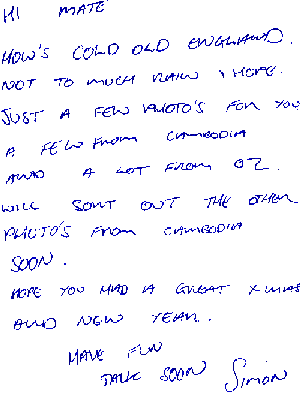 HI MATE
HOW'S COLD OLD ENGLAND.
NOT TO MUCH RAIN I HOPE.
JUST A FEW PHOTO'S FOR YOU
A FEW FROM CAMBODIA
AND A LOT FROM OZ.
WILL SORT OUT THE OTHER
PHOTO'S FROM CAMBODIA
SOON.
HOPE YOU HAD A GREAT XMAS
AND NEW YEAR.
HAVE FUN
TALK SOON Simon